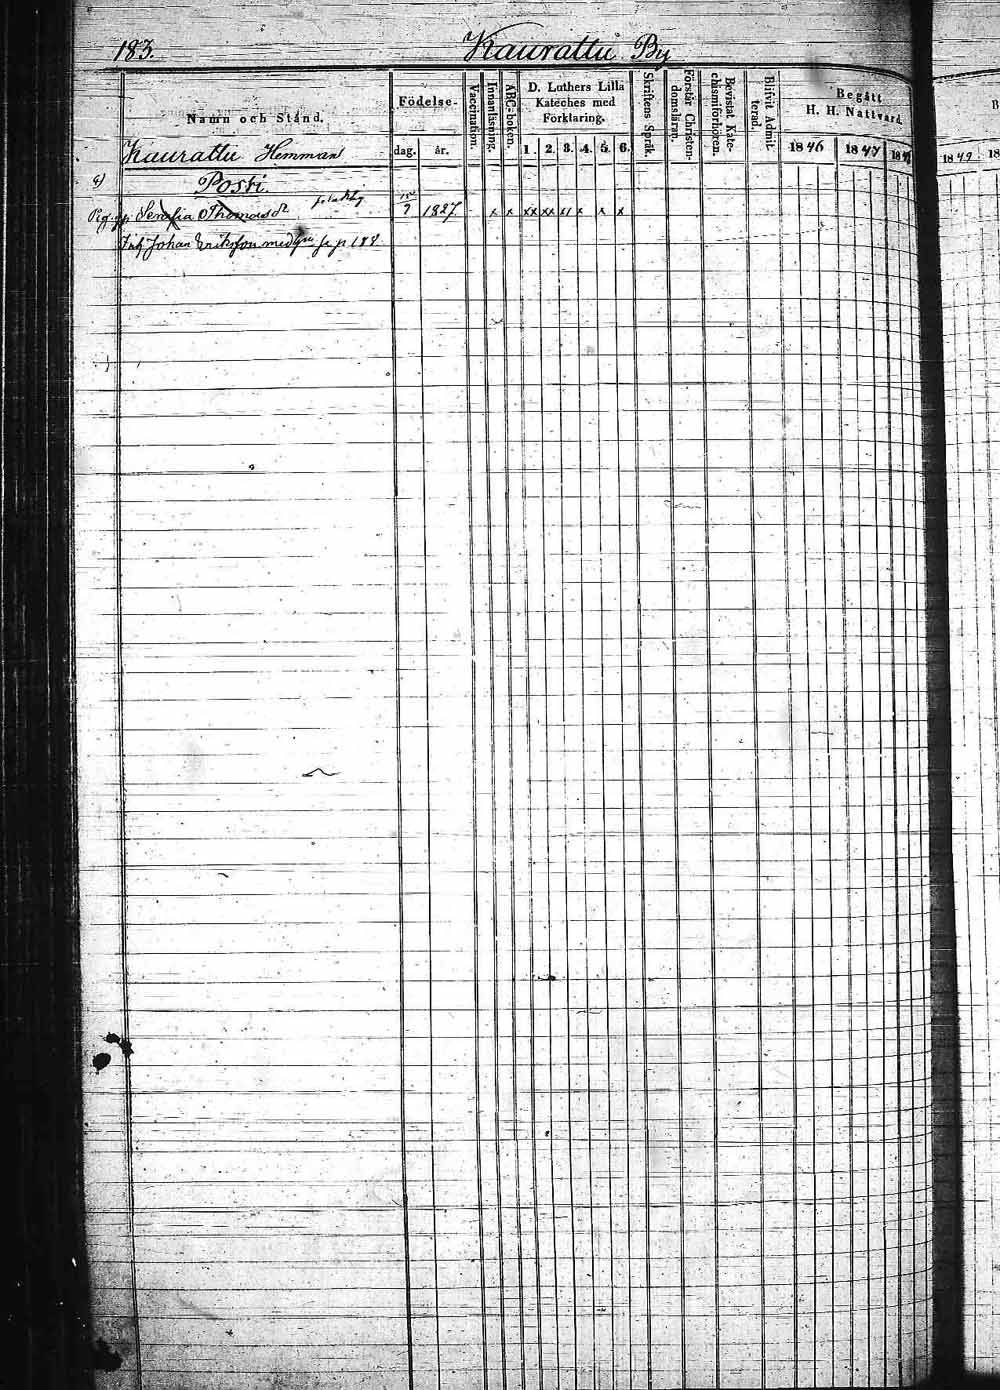 183. Kaurattu By
Namn och Stånd.
Födelse-
dag. år.
Vaccination.
Innanläsning.
ABC-boken.
D. Luthers Lilla
Kateches med
Förklaring.
1. 2. 3. 4. 5. 6.
Skriftens Språk.
Förstår Christen-
domsläran.
Bevistat Kate-
chismiförhören.
Blifvit Admit-
terad.
Begått
H. H. Nattvard.
1846 1847 1848
1849 18
Kaurattu Hemman
Posti.
Pig. Serafia Thomasdr 7 1827 x x xx xx x x x
Johan Eriksson med